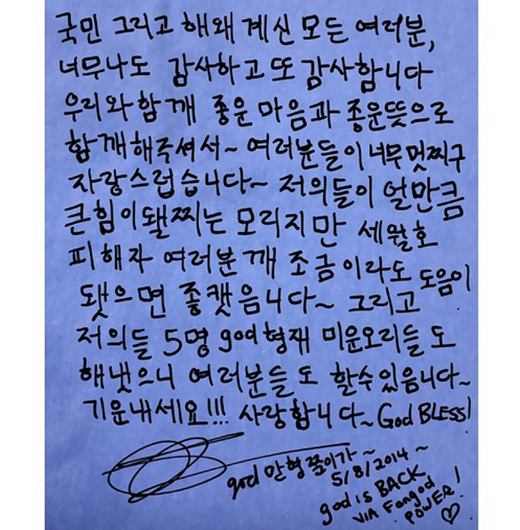 국민 그리고 해왜 계신 모든 여러분,
너무나도 감사하고 또 감사함니다
우리와 함깨 좋운 마음과 좋운뜻으로
함깨해주셔서~ 여러분들이 너무 멋찌구
자랑스럽습니다~ 저의들이 얼만큼
큰힘이돼찌는 모리지만 세월호
피해자 여러분깨 조금이라도 도음이
됏으면 좋캣음니다~ 그리고
저의들 5명 god형재 미운오리들도
해냇으니 여러분들도 할수있음니다~
기운내세요!!! 사랑함니다~ God BLESS!
god 만형쭌이가~
5/8/2014~
god is BACK
VIA Fangod
POWER!